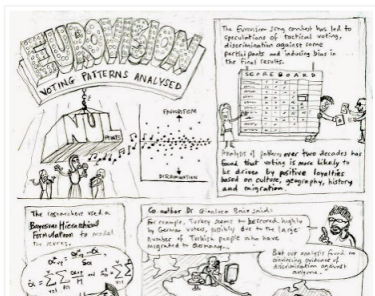 EUROVISION
VOTING PATTERNS ANALYSED
POINTS
FAVOURITISM
DISCRIMINATION
The Eurovision Song contest has led to
speculations of tactical voting,
discrimination against some
participants and inducing bias in
the final results.
SCOREBOARD
Analysis of voting patterns over two decades has
found that voting is more likely to
be driven by positive loyalties
based on culture, geography, history
and migration.
The researchers used a
Bayesian Hierarchical
Formulation to model
the scores.
Co author Dr Gianluca Baio said:
For example, Turkey seem to be scored highly
by German voters, possibly due to the large
number of Turkish people who have
migrated to Germany.
But our analysis found no
convincing evidence of
discrimination against
anyone.